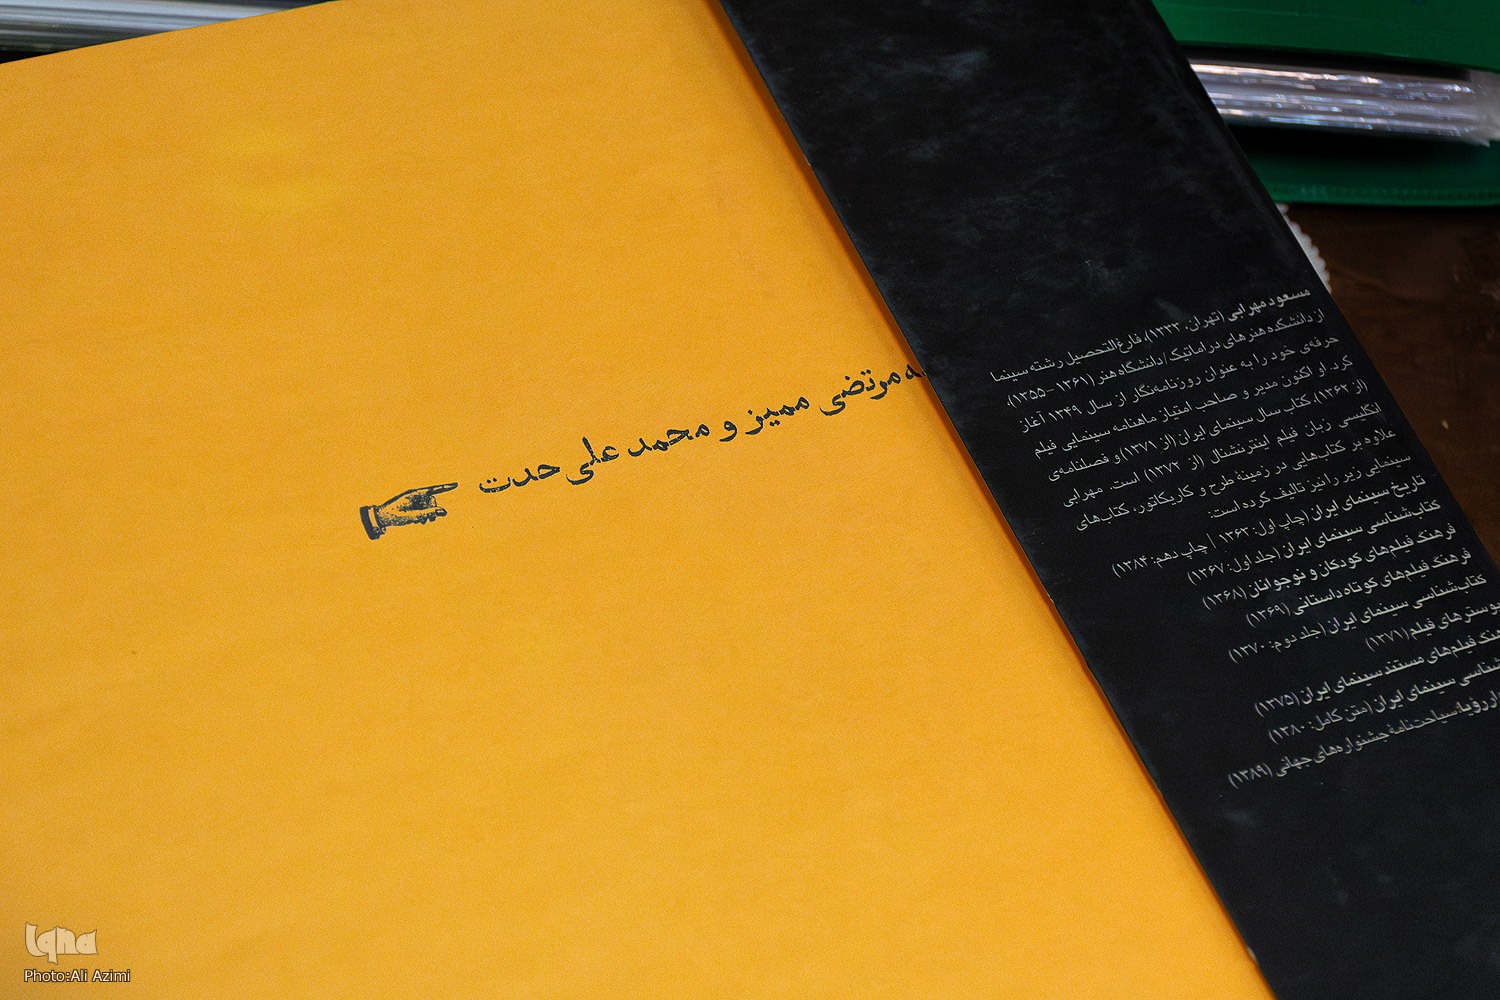 مرتضی ممیز و محمد علی حدت
مسعود مهرابی (تهران، ۱۳۳۳)، فارغ‌التحصیل رشته سینما
از دانشکده هنرهای دراماتیک / دانشگاه هنر (۱۳۶۱ – ۱۳۵۵)،
حرفه‌ی خود را به عنوان روزنامه‌نگار از سال ۱۳۴۹ آغاز
کرد. او اکنون مدیر و صاحب امتیاز ماهنامه سینمایی فیلم
(از ۱۳۶۲)، کتاب سال سینمای ایران (از ۱۳۷۱) و فصلنامه‌ی
انگلیسی زبان فیلم اینترنشنال (از ۱۳۷۲) است. مهرابی
علاوه بر کتاب‌هایی در زمینه طرح و کاریکاتور، کتاب‌های
سینمایی زیر را نیز تالیف کرده است:
تاریخ سینمای ایران (چاپ اول: ۱۳۶۳ | چاپ دهم: ۱۳۸۴)
کتاب‌شناسی سینمای ایران (جلد اول: ۱۳۶۷)
فرهنگ فیلم‌های کودکان و نوجوانان (۱۳۶۸)
فرهنگ فیلم‌های کوتاه داستانی (۱۳۶۹)
کتاب‌شناسی سینمای ایران (جلد دوم: ۱۳۷۰)
پوسترهای فیلم (۱۳۷۱)
فیلم‌های مستند سینمای ایران (۱۳۷۵)
سینمای ایران (متن کامل: ۱۳۸۰)
رؤیا: سیاحت‌نامهٔ جشنواره‌های جهانی (۱۳۸۹)
Iqna
Photo:Ali Azimi